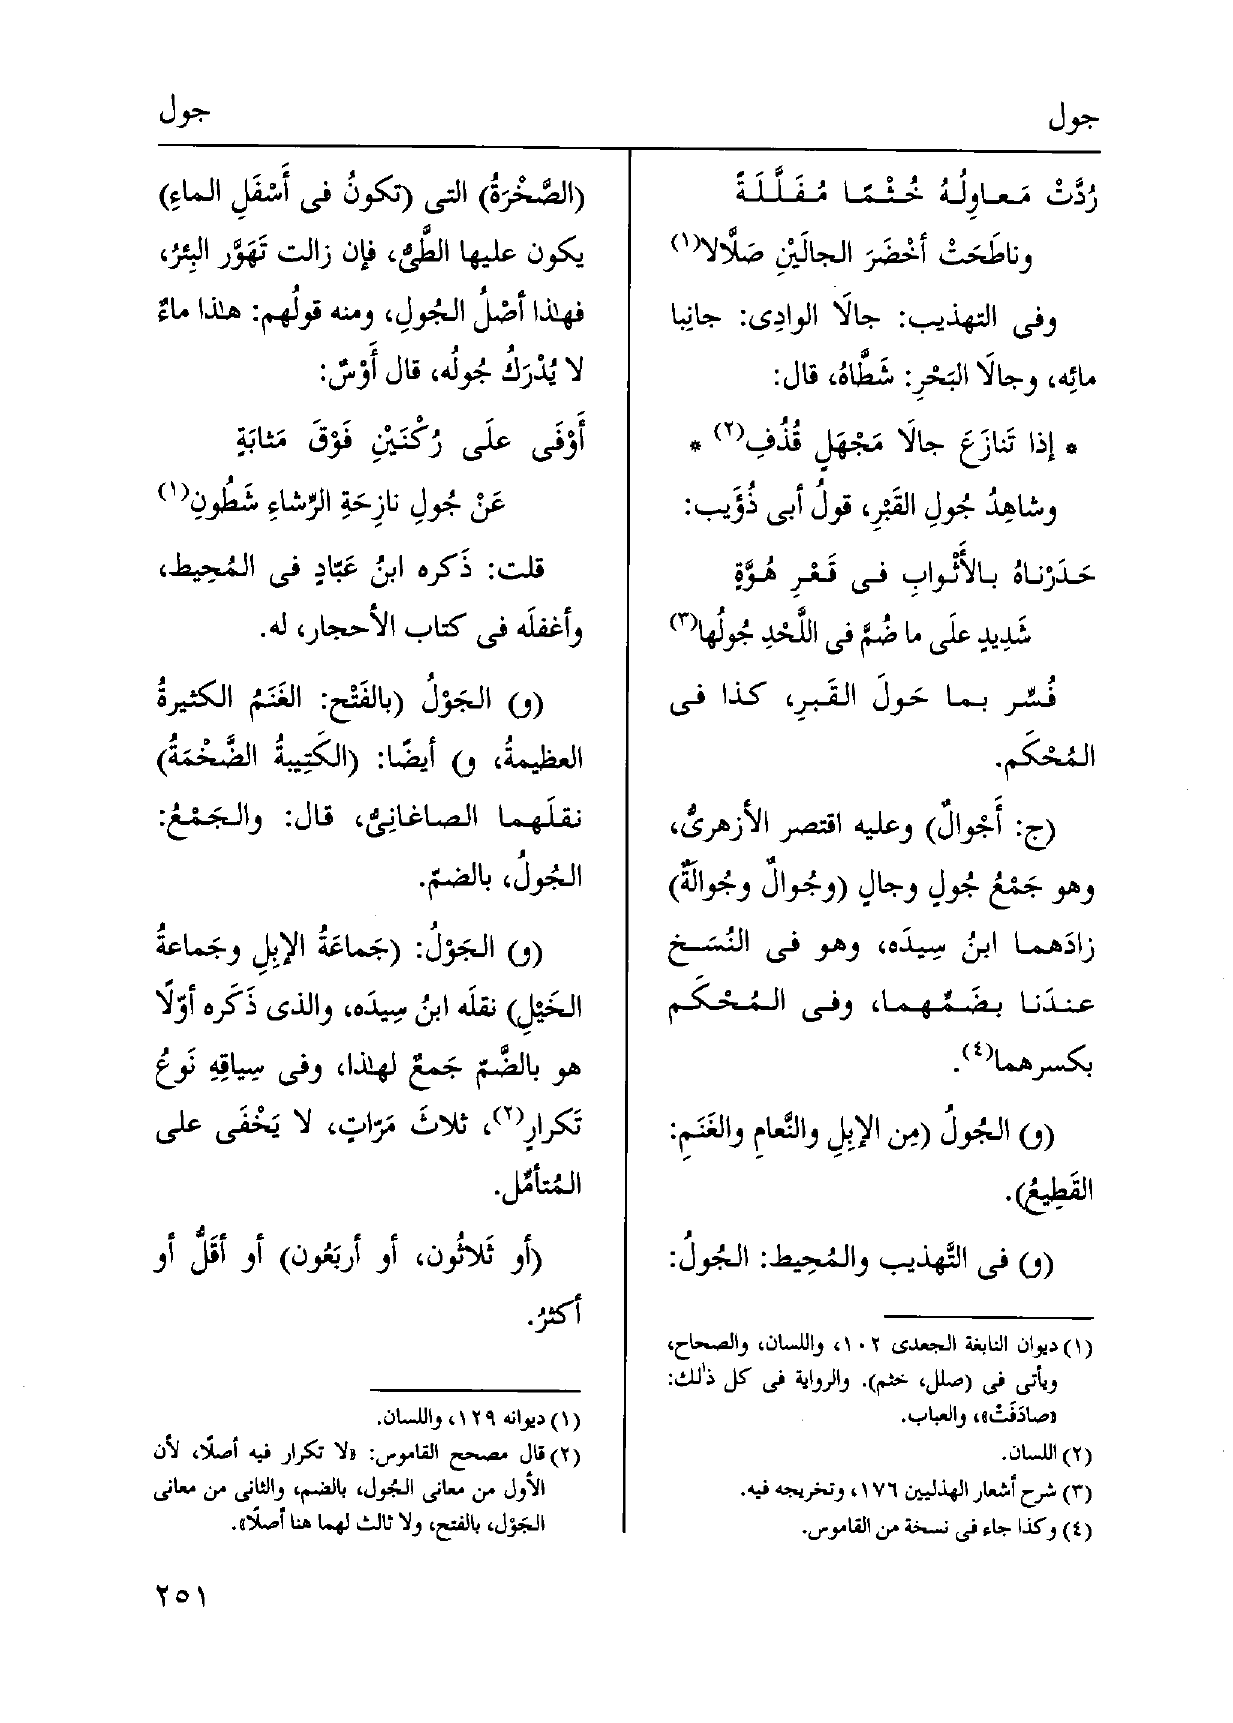 جول
جول
رُدَّتْ مَعاوِلُهُ خُثْمًا مُفَلَّلَةً
وناطَحَتْ أَخْضَرَ الجالَيْنِ صَلّالا(١)
وفى التهذيب: جالَا الوادِى: جانِبا
مائِه، وجالَا البَحْرِ: شَطَّاهُ، قال:
* إذا تَنازَعَ جالَا مَجْهَلٍ قُذُفِ(٢) *
وشاهِدُ جُولِ القَبْرِ، قولُ أبى ذُؤَيب:
حَدَرْناهُ بالأَثْوابِ فى قَعْرِ هُوَّةٍ
شَدِيدٍ علَى ما ضُمَّ فى اللَّحْدِ جُولُها(٣)
فُسِّر بما حَولَ القَبرِ، كذا فى
المُحْكَم.
(ج: أَجْوالٌ) وعليه اقتصر الأزهرىُّ،
وهو جَمْعُ جُولٍ وجالٍ (وجُوالٌ وجُوالَةٌ)
زادَهما ابنُ سِيدَه، وهو فى النُسَخ
عندَنا بضَمِّهما، وفى المُحْكَم
بكسرهما(٤).
(و) الجُولُ (مِن الإبِلِ والنَّعامِ والغَنَمِ:
القَطِيعُ).
(و) فى التَّهذيب والمُحِيط: الجُولُ:
(١) ديوان النابغة الجعدى ١٠٢، واللسان، والصحاح،
ويأتى فى (صلل، خثم). والرواية فى كل ذلك:
«صادَفَتْ»، والعباب.
(٢) اللسان.
(٣) شرح أشعار الهذليين ١٧٦، وتخريجه فيه.
(٤) وكذا جاء فى نسخة من القاموس.
(الصَّخْرَةُ) التى (تكونُ فى أَسْفَلِ الماءِ)
يكون عليها الطَّىُّ، فإن زالت تَهَوَّر البِئرُ،
فهٰذا أَصْلُ الجُولِ، ومنه قولُهم: هٰذا ماءٌ
لا يُدْرَكُ جُولُه، قال أَوْسٌ:
أَوْفَى علَى رُكْنَيْنِ فَوْقَ مَثابَةٍ
عَنْ جُولِ نازِحَةِ الرِّشاءِ شَطُونِ(١)
قلت: ذَكره ابنُ عَبّادٍ فى المُحِيط،
وأغفلَه فى كتاب الأحجار، له.
(و) الجَوْلُ (بالفَتْح: الغَنَمُ الكثيرةُ
العظيمةُ، و) أيضًا: (الكَتِيبةُ الضَّخْمَةُ)
نقلَهما الصاغانِىُّ، قال: والجَمْعُ:
الجُولُ، بالضمّ.
(و) الجَوْلُ: (جَماعَةُ الإبِلِ وجَماعةُ
الخَيْلِ) نقلَه ابنُ سِيدَه، والذى ذَكَره أوّلًا
هو بالضَّمّ جَمعٌ لهٰذا، وفى سِياقِهِ نَوعُ
تَكرارٍ(٢)، ثلاثَ مَرّاتٍ، لا يَخْفَى على
المُتأمِّل.
(أو ثَلاثُون، أو أربَعُون) أو أقَلُّ أو
أكثرُ.
(١) ديوانه ١٢٩، واللسان.
(٢) قال مصحح القاموس: «لا تكرار فيه أصلًا، لأن
الأول من معانى الجُول، بالضم، والثانى من معانى
الجَوْل، بالفتح، ولا ثالث لهما هنا أصلًا».
٢٥١